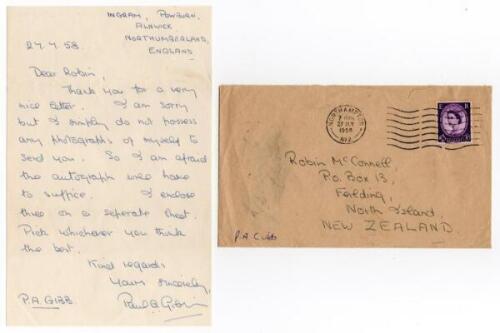 INGRAM, POWBURN,
ALNWICK
NORTHUMBERLAND,
ENGLAND
27.7.58
Dear Robin,
Thank you for a very
nice letter. I am sorry
but I simply do not possess
any photographs of myself to
send you. So I am afraid
the autograph will have
to suffice. I enclose
three on a seperate sheet.
Pick whichever you think
the best.
Kind regards
Yours sincerely,
P.A. GIBB
NORTHAMPTON
1958
Robin McConnell
P.O. Box 13,
Feilding,
North Island,
NEW ZEALAND.